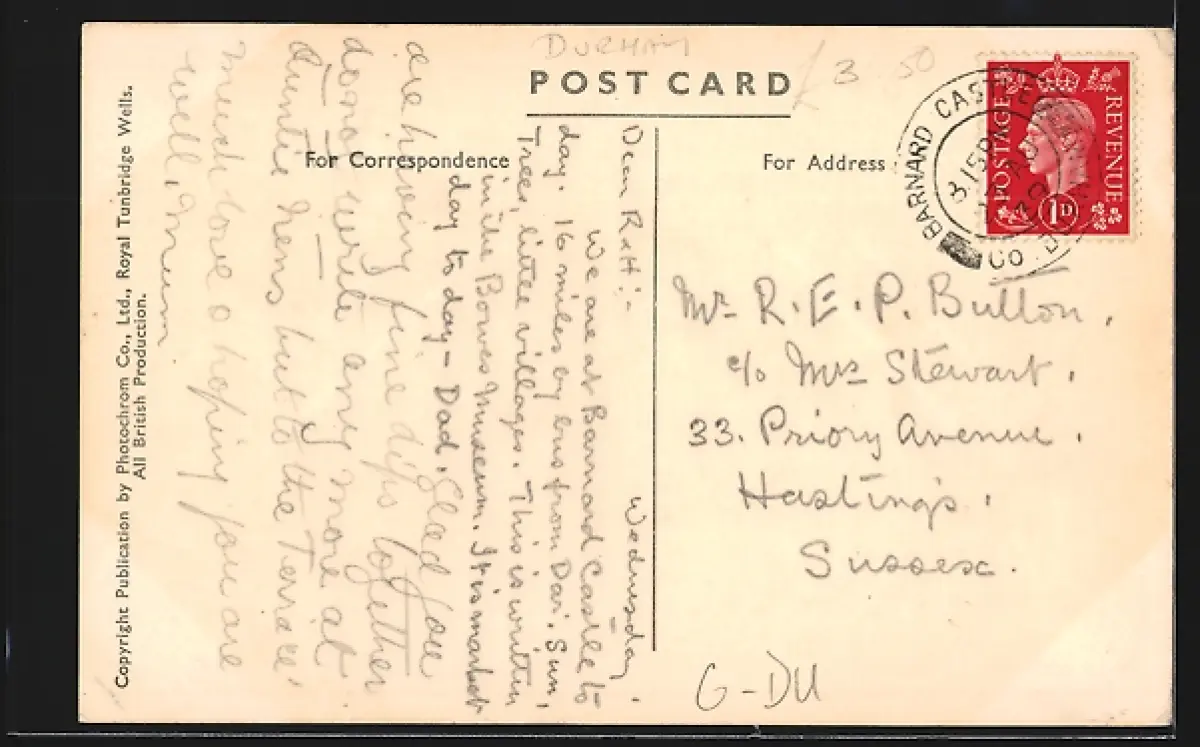 DURHAM
£3.50
POST CARD
For Correspondence
For Address
BARNARD CASTLE
CO. DURHAM
3 15 PM
POSTAGE
REVENUE
1D
Wednesday.
Dear R & H :-
We are at Barnard Castle to
day. 16 miles by bus from Dar. Sun,
Trees, little villages. This is written
in the Bowes Museum. It is market
day to day - Dad. Glad you
are having fine dips together
do not write any more at
Auntie Rens but to the Terrace
much love & hoping you are
well, Mum.
Mr R. E. P. Button,
c/o Mrs Stewart,
33. Priory Avenue.
Hastings.
Sussex.
G-DU
Copyright Publication by Photochrom Co., Ltd., Royal Tunbridge Wells.
All British Production.